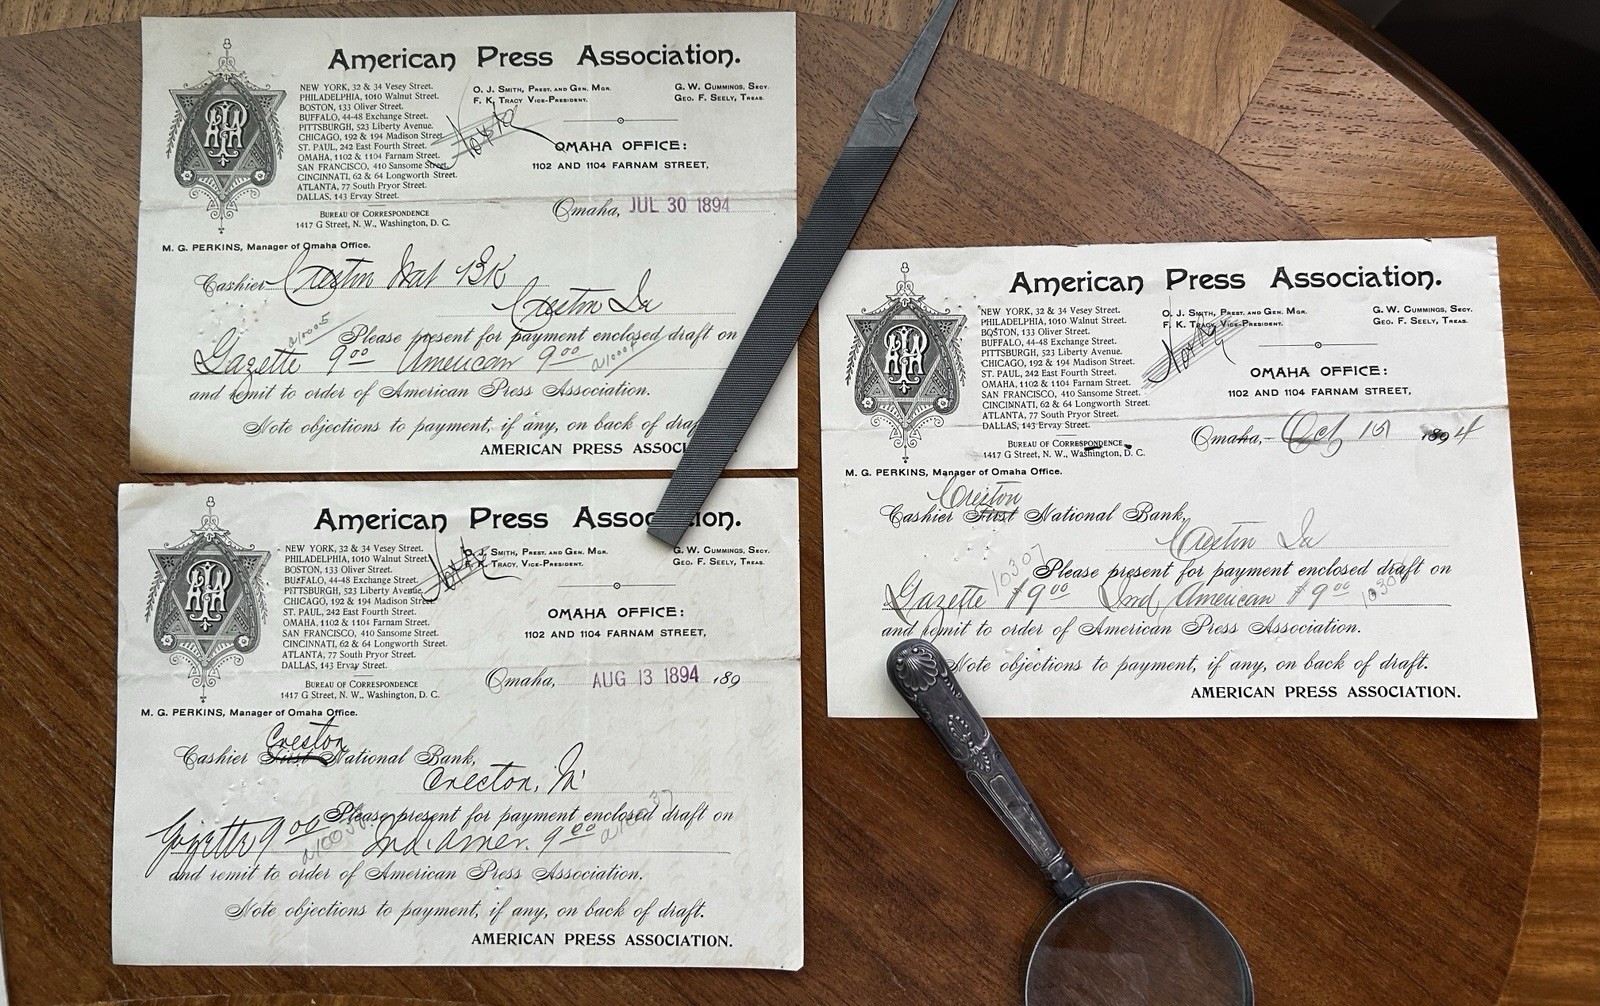 American Press Association.
NEW YORK, 32 & 34 Vesey Street.
PHILADELPHIA, 1010 Walnut Street.
BOSTON, 133 Oliver Street.
BUFFALO, 44-48 Exchange Street.
PITTSBURGH, 523 Liberty Avenue.
CHICAGO, 192 & 194 Madison Street.
ST. PAUL, 242 East Fourth Street.
OMAHA, 1102 & 1104 Farnam Street.
SAN FRANCISCO, 410 Sansome Street.
CINCINNATI, 62 & 64 Longworth Street.
ATLANTA, 77 South Pryor Street.
DALLAS, 143 Ervay Street.
BUREAU OF CORRESPONDENCE
1417 G Street, N. W., Washington, D. C.
O. J. SMITH, PREST. AND GEN. MGR.
F. K. TRACY VICE-PRESIDENT.
G. W. CUMMINGS, SECY.
GEO. F. SEELY, TREAS.
OMAHA OFFICE:
1102 AND 1104 FARNAM STREET,
Omaha, JUL 30 1894
M. G. PERKINS, Manager of Omaha Office.
Cashier Creston Nat Bk
Creston Ia
Please present for payment enclosed draft on
Gazette 9 00 American 9 00
and remit to order of American Press Association.
Note objections to payment, if any, on back of draft.
AMERICAN PRESS ASSOCI
American Press Association.
NEW YORK, 32 & 34 Vesey Street.
PHILADELPHIA, 1010 Walnut Street.
BOSTON, 133 Oliver Street.
BUFFALO, 44-48 Exchange Street.
PITTSBURGH, 523 Liberty Avenue.
CHICAGO, 192 & 194 Madison Street.
ST. PAUL, 242 East Fourth Street.
OMAHA, 1102 & 1104 Farnam Street.
SAN FRANCISCO, 410 Sansome Street.
CINCINNATI, 62 & 64 Longworth Street.
ATLANTA, 77 South Pryor Street.
DALLAS, 143 Ervay Street.
BUREAU OF CORRESPONDENCE
1417 G Street, N. W., Washington, D. C.
J. SMITH, PREST. AND GEN. MGR.
TRACY, VICE-PRESIDENT.
G. W. CUMMINGS, SECY.
GEO. F. SEELY, TREAS.
OMAHA OFFICE:
1102 AND 1104 FARNAM STREET,
Omaha, AUG 13 1894 189
M. G. PERKINS, Manager of Omaha Office.
Creston
Cashier First National Bank,
Creston, Ia
Please present for payment enclosed draft on
Gazette 9 00 Ind. Amer. 9 00
and remit to order of American Press Association.
Note objections to payment, if any, on back of draft.
AMERICAN PRESS ASSOCIATION.
American Press Association.
NEW YORK, 32 & 34 Vesey Street.
PHILADELPHIA, 1010 Walnut Street.
BOSTON, 133 Oliver Street.
BUFFALO, 44-48 Exchange Street.
PITTSBURGH, 523 Liberty Avenue.
CHICAGO, 192 & 194 Madison Street.
ST. PAUL, 242 East Fourth Street.
OMAHA, 1102 & 1104 Farnam Street.
SAN FRANCISCO, 410 Sansome Street.
CINCINNATI, 62 & 64 Longworth Street.
ATLANTA, 77 South Pryor Street.
DALLAS, 143 Ervay Street.
BUREAU OF CORRESPONDENCE
1417 G Street, N. W., Washington, D. C.
O. J. SMITH, PREST. AND GEN. MGR.
F. K. TRACY, VICE-PRESIDENT.
G. W. CUMMINGS, SECY.
GEO. F. SEELY, TREAS.
OMAHA OFFICE:
1102 AND 1104 FARNAM STREET,
Omaha, Oct 1894
M. G. PERKINS, Manager of Omaha Office.
Creston
Cashier First National Bank,
Creston Ia
Please present for payment enclosed draft on
Gazette $9 00 Ind American $9 00
and remit to order of American Press Association.
Note objections to payment, if any, on back of draft.
AMERICAN PRESS ASSOCIATION.